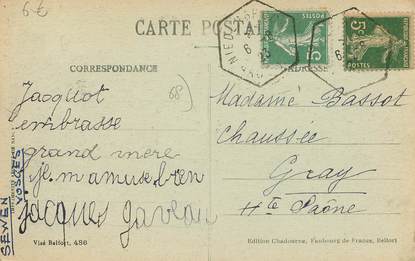 6€
CARTE POSTALE
CORRESPONDANCE
ADRESSE
5c
POSTES
5c
POSTES
68)
Jacquot
embrasse
grand mere
je m amuse bien
jacques
Madame Bassot
Chaussée
Gray
Hte Saône
SEWEN
VOSGES
Visé Belfort, 486
Edition Chadourne, Faubourg de France, Belfort